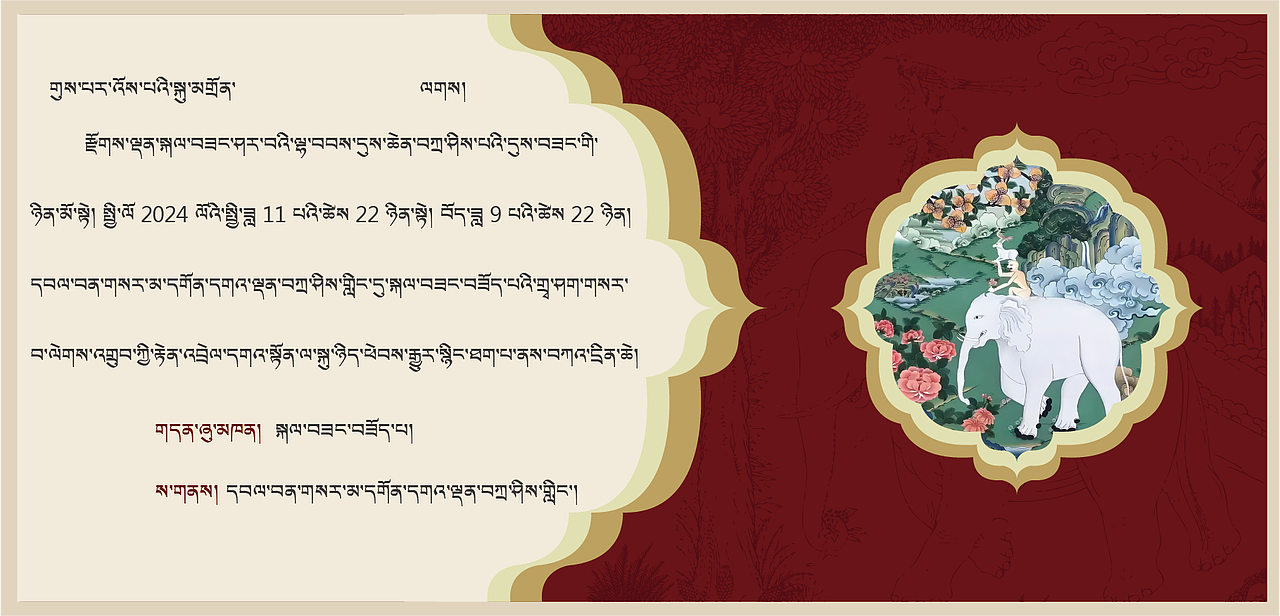 གུས་པར་འོས་པའི་སྐུ་མགྲོན་ ལགས།
རྫོགས་ལྡན་སྐལ་བཟང་ཤར་བའི་ལྷ་བབས་དུས་ཆེན་བཀྲ་ཤིས་པའི་དུས་བཟང་གི་
ཉིན་མོ་སྟེ། སྤྱི་ལོ 2024 ལོའི་སྤྱི་ཟླ 11 པའི་ཚེས 22 ཉིན་སྟེ། བོད་ཟླ 9 པའི་ཚེས 22 ཉིན།
དབལ་བན་གསར་མ་དགོན་དགའ་ལྡན་བཀྲ་ཤིས་གླིང་དུ་སྐལ་བཟང་བཟོད་པའི་གྲྭ་ཤག་གསར་
བ་ལེགས་འགྲུབ་ཀྱི་རྟེན་འབྲེལ་དགའ་སྟོན་ལ་སྐུ་ཉིད་ཕེབས་རྒྱུར་སྙིང་ཐག་པ་ནས་བཀའ་དྲིན་ཆེ།
གདན་ཞུ་མཁན། སྐལ་བཟང་བཟོད་པ།
ས་གནས། དབལ་བན་གསར་མ་དགོན་དགའ་ལྡན་བཀྲ་ཤིས་གླིང་།